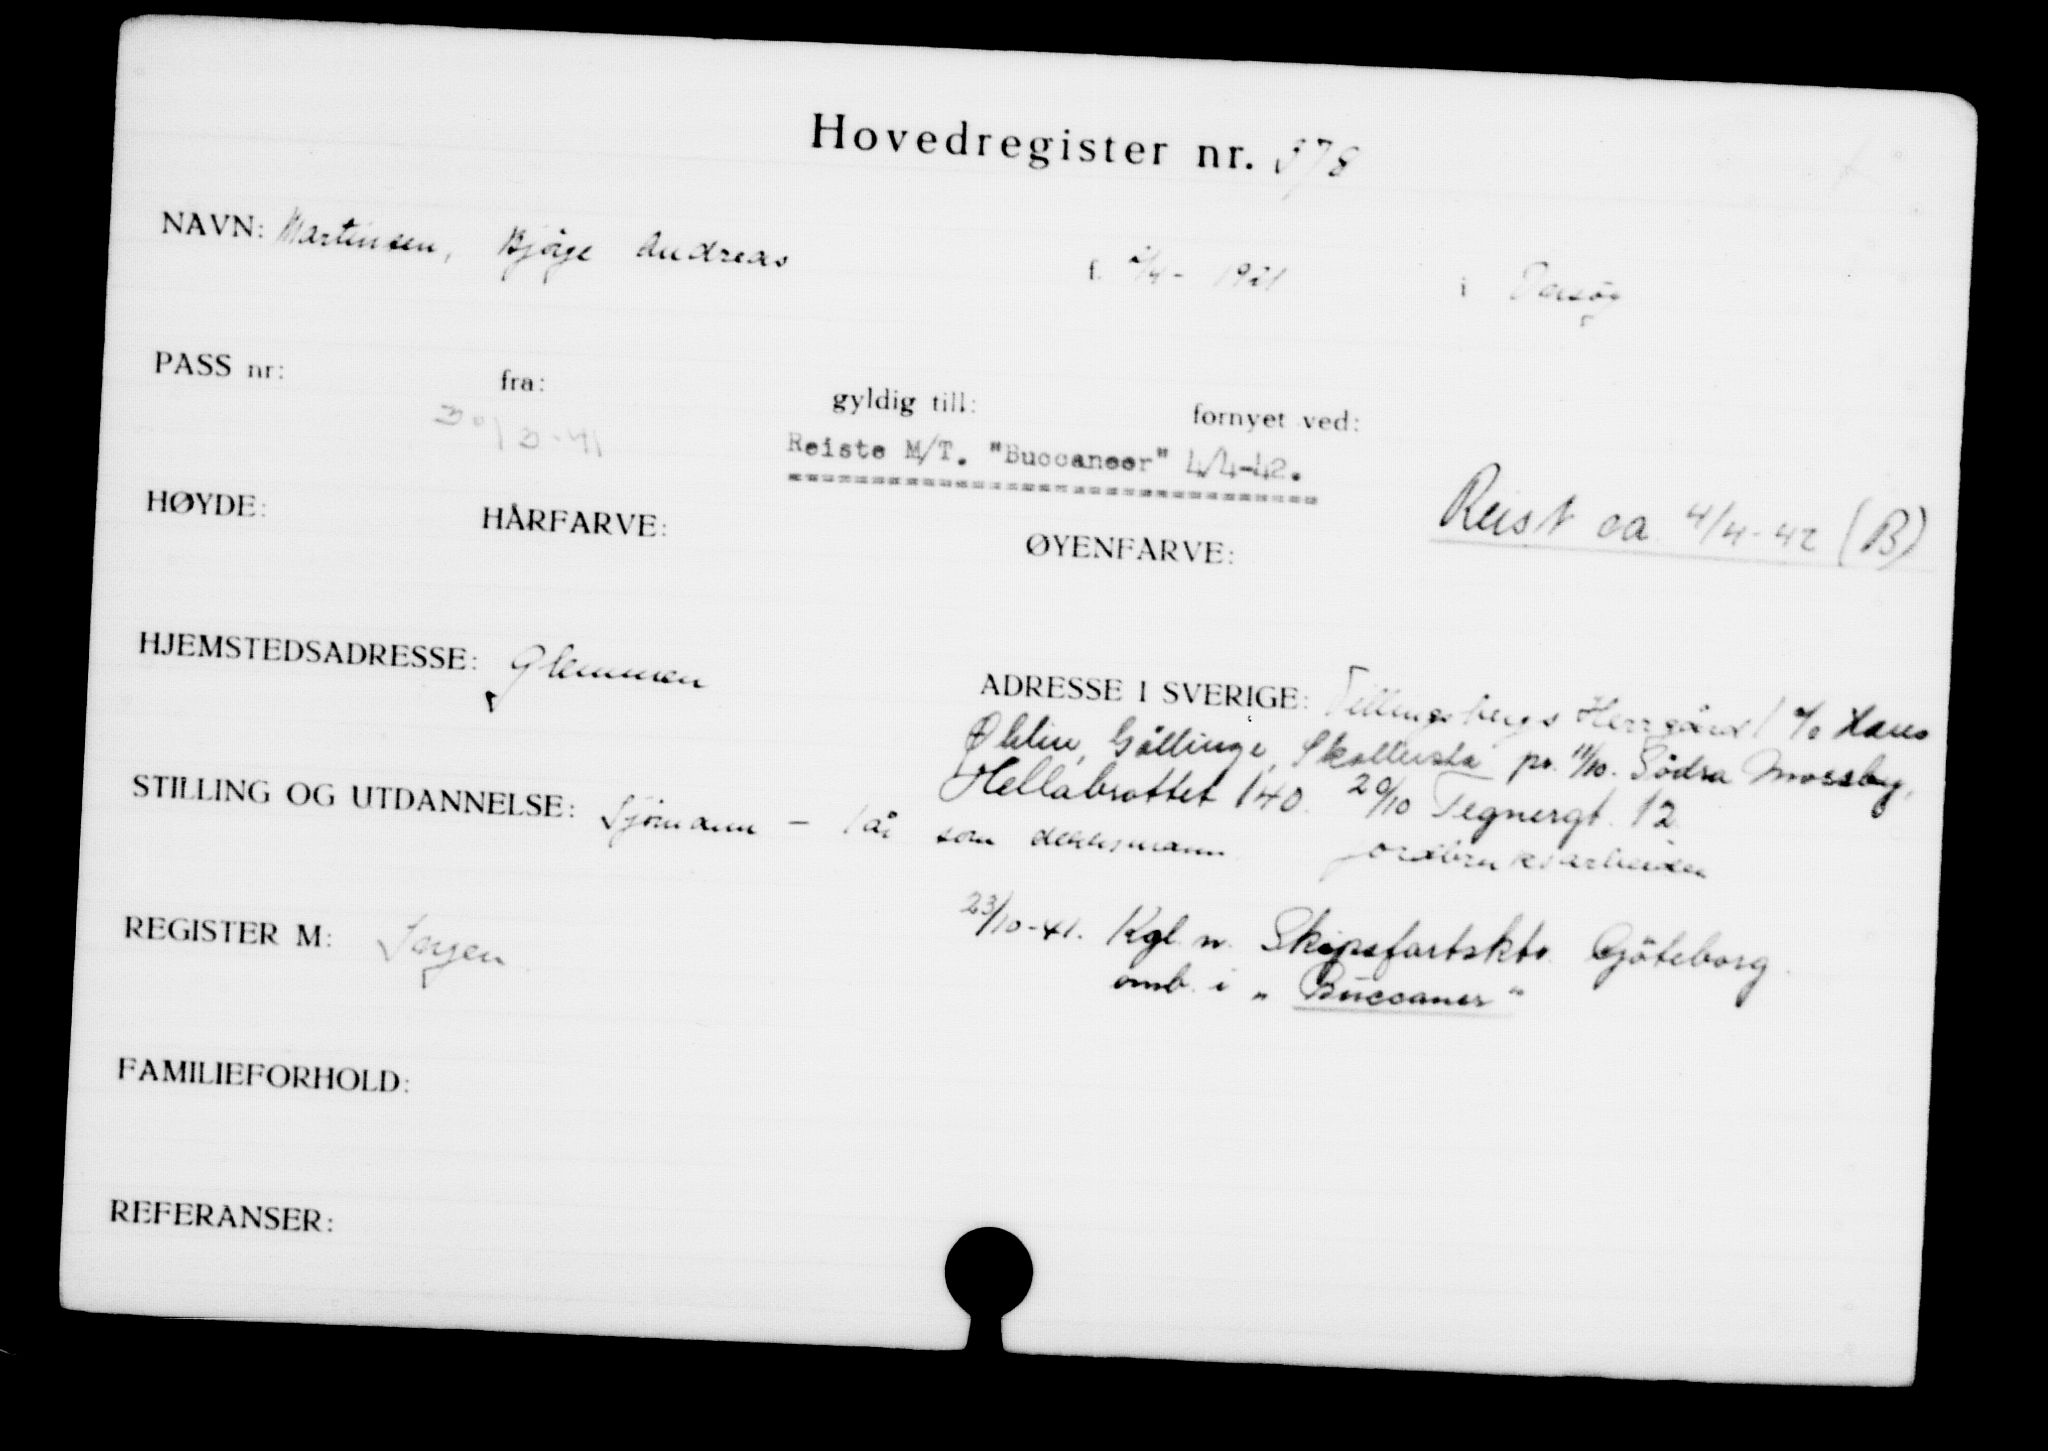 Hovedregister nr. 378
NAVN: Martinsen, Bjørge Andreas f. 2/4 - 1921 i Onsøy
PASS nr: fra: gyldig till: fornyet ved:
30/3-41
Reiste M/T. "Buccaneer" 4/4-42.
Reist ca 4/4-42 (B)
HØYDE: HÅRFARVE: ØYENFARVE:
HJEMSTEDSADRESSE: Glemmen
ADRESSE I SVERIGE: Herrgård c/o Hans
Öhlin, Gällinge, Skollersta pr. 11/10. Södra Mossby,
Hellabrottet 140. 20/10 Tegnergt. 12
STILLING OG UTDANNELSE: Sjömann – 1 år som dekksmann jordbruksarbeider
REGISTER M:
23/10-41. Kgl. n. Skipsfartsktr. Göteborg.
omb. i „Buccaner"
FAMILIEFORHOLD:
REFERANSER: